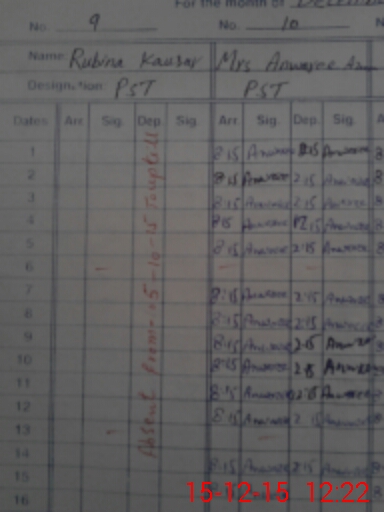 For the month of
No. 9 No. 10
Name: Rubina Kausar Mrs Anwaree
Designation: PST PST
Dates Arr. Sig. Dep. Sig. Arr. Sig. Dep. Sig. A
Absent From 05-10-15
1 8:15 Anwaree 2:15 Anwaree 8
2 8:15 Anwaree 2:15 Anwaree 8
3 8:15 Anwaree 2:15 Anwaree 8
4 8:15 Anwaree 12:15 Anwaree 8
5 8:15 Anwaree 2:15 Anwaree 8
6 - - -
7 8:15 Anwaree 2:15 Anwaree
8 8:15 Anwaree 2:15 Anwaree
9 8:15 Anwaree 2:15 Anwaree
10 8:15 Anwaree 2:15 Anwaree
11 8:15 Anwaree 2:15 Anwaree
12 8:15 Anwaree 2:15 Anwaree
13 - -
14
15 8:15 Anwaree 2:15 Anwaree
16
15-12-15 12:22